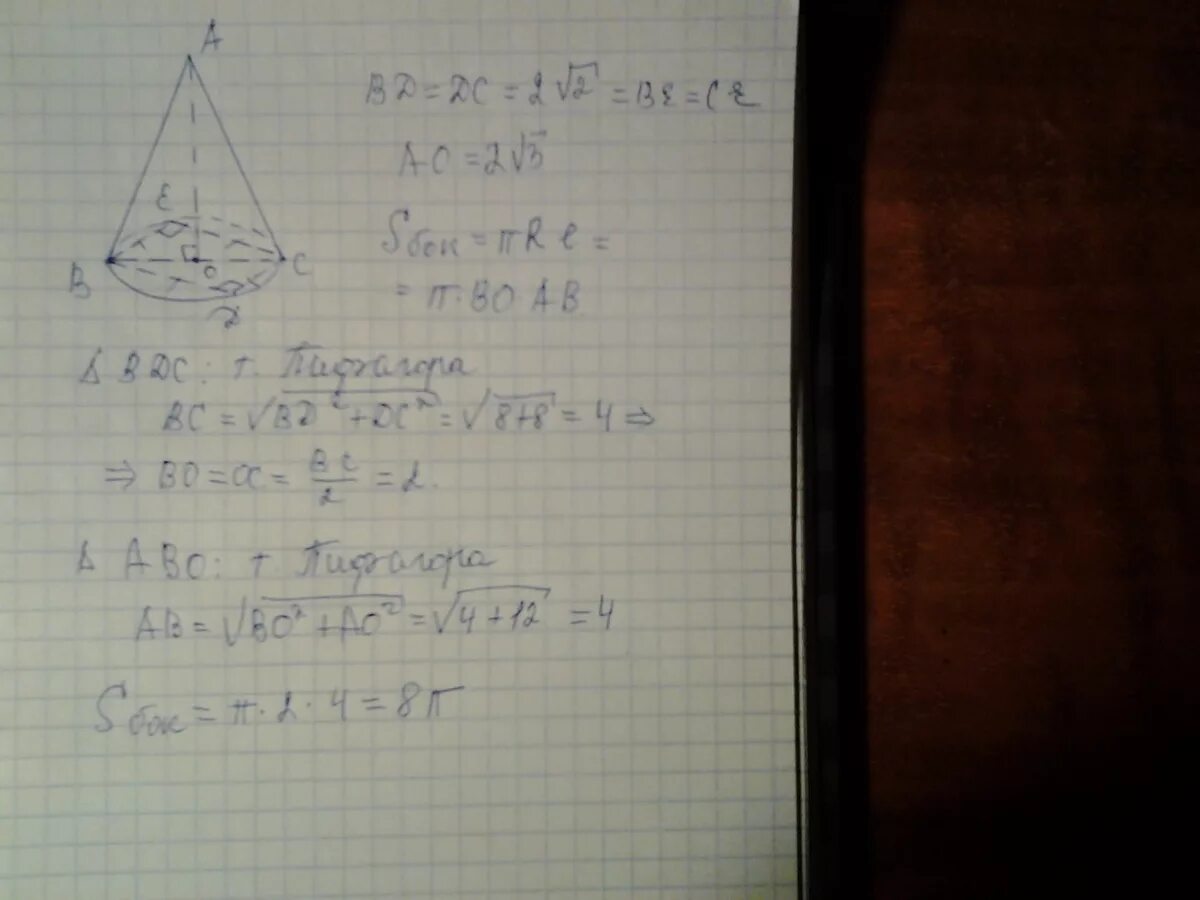 A
E
B
O
C
D
BD = DC = 2√2 = BE = CE
AO = 2√3
Sбок = πRl =
= π·BO·AB
Δ BDC: т. Пифагора
BC = √BD² + DC² = √8+8 = 4 ⇒
⇒ BO = OC = BC/2 = 2.
Δ ABO: т. Пифагора
AB = √BO² + AO² = √4+12 = 4
Sбок = π·2·4 = 8π